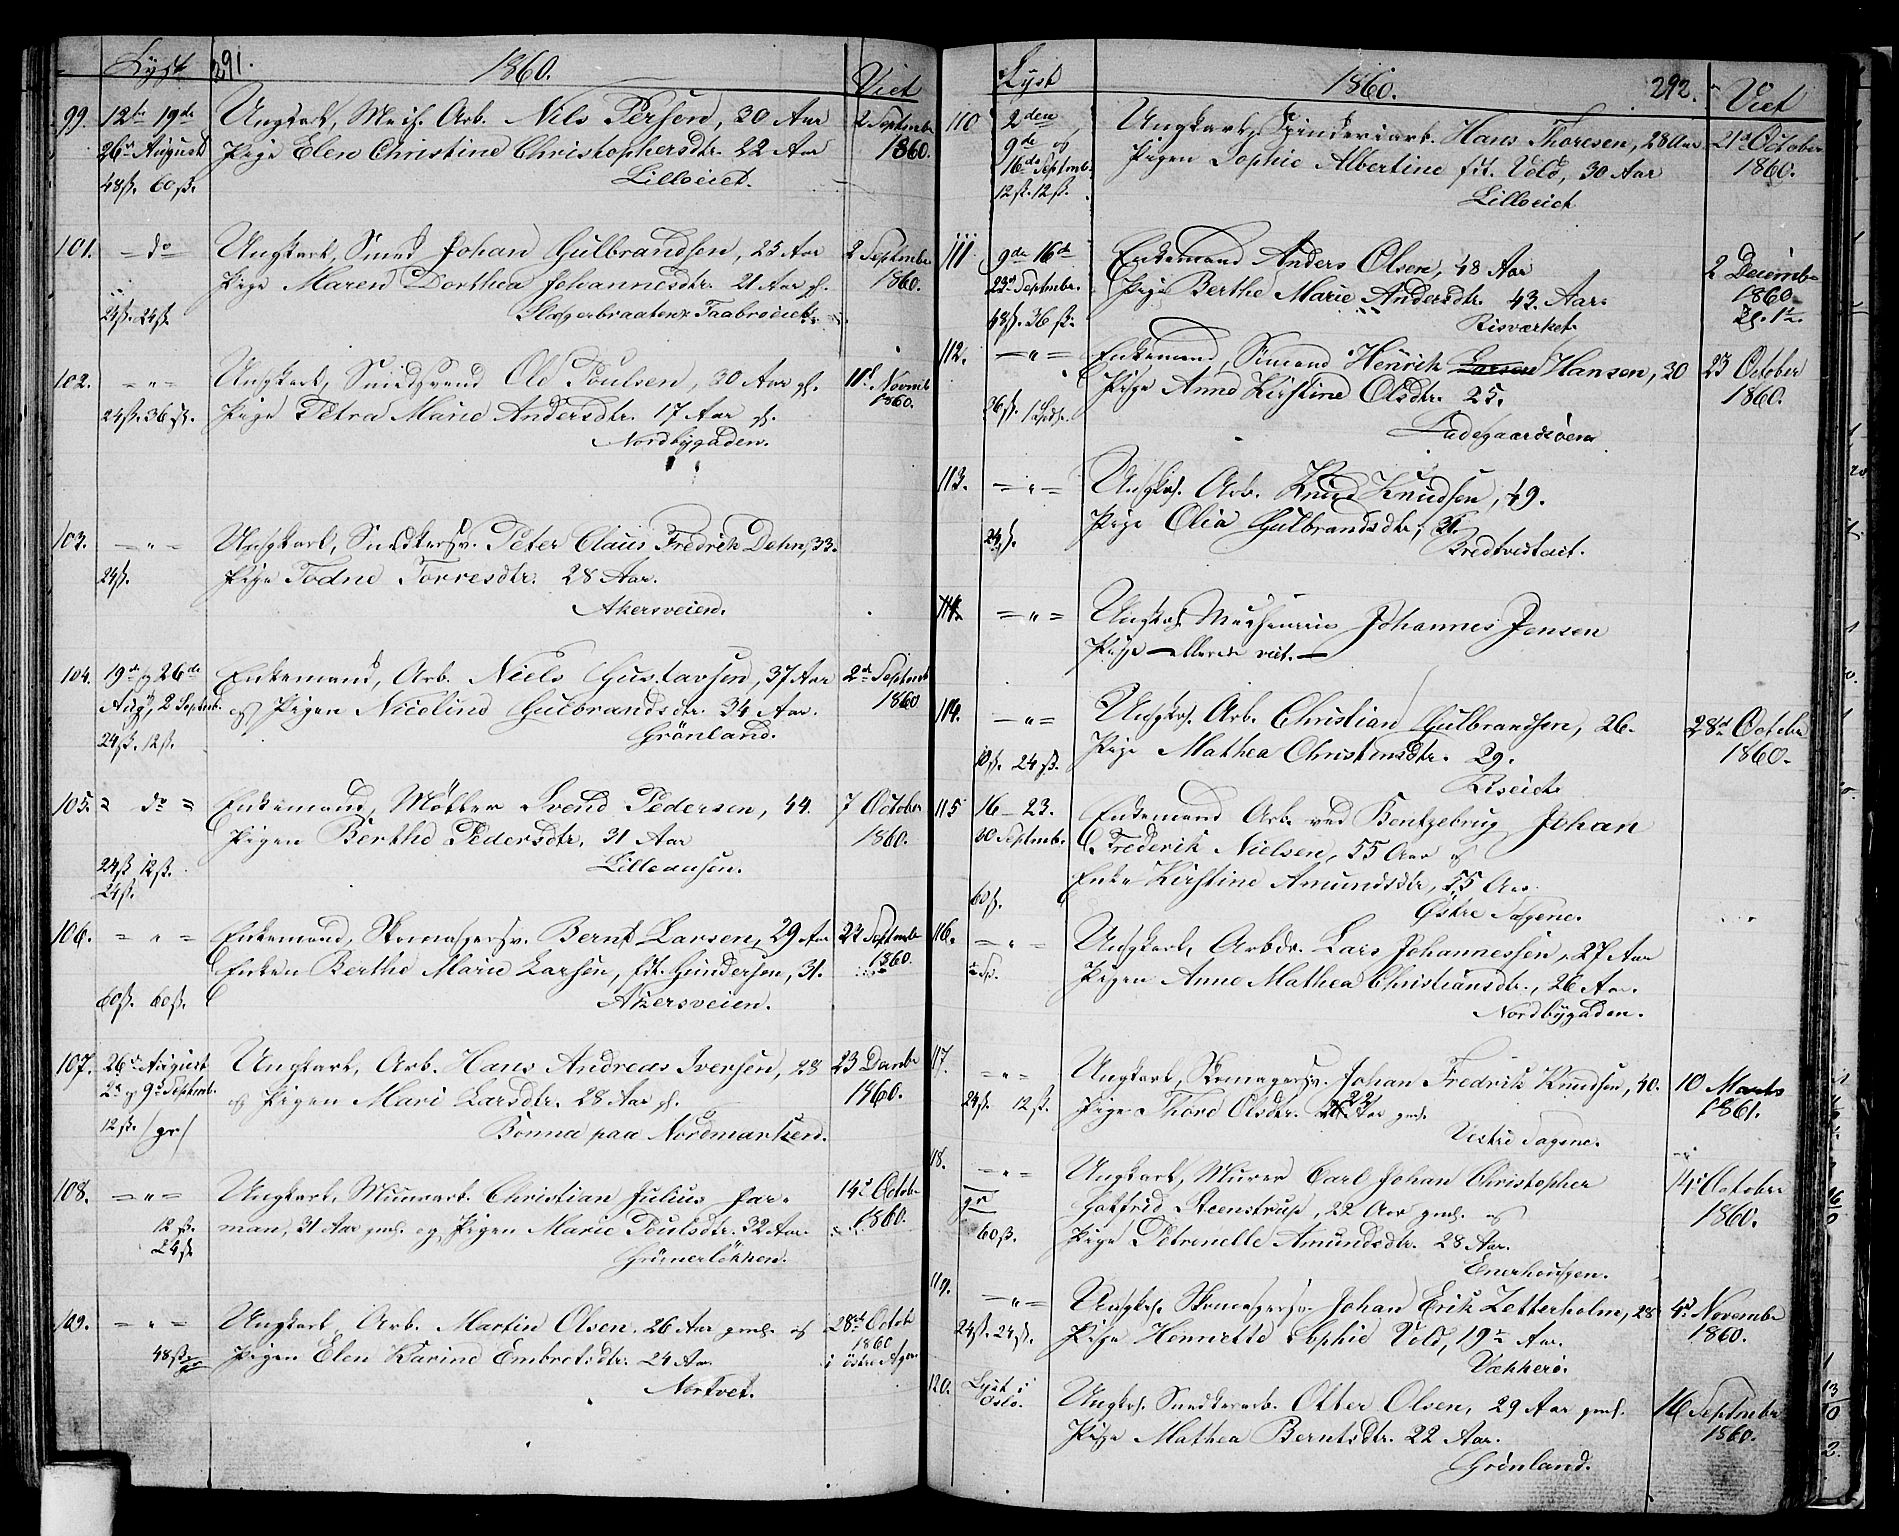 Lyst 291. 1860. Viet
99. 12te 19de Ungkarl, Arb. Nils Persen, 30 Aar 2 Septembr
26de August Pige Elen Christine Christophersdtr. 22 Aar 1860.
48ß. 60ß. Lilloeiet.
101. — do Ungkarl, Smed Johan Gulbrandsen, 25 Aar 2 Septembr
Pige Maren Dorthea Johannesdtr. 21 Aar gl. 1860.
24ß. 24ß.
102. — " — Ungkarl, Ole Poulsen, 30 Aar gl. 11te Novmb
24ß. 36ß. Pige Petra Marie Andersdtr. 17 Aar gl. 1860.
Nordbygaden.
103. — " — Ungkarl, Snedkersv. Peter Claus Fredrik Dehn, 33.
24ß. Pige Todne Torresdtr. 28 Aar.
Akersveien.
104. 19de og 26de Enkemand, Arb. Niels Gustavsen, 37 Aar 2de Septmb
Aug, 2 Septmb. og Pigen Nicoline Gulbrandsdtr. 34 Aar. 1860
24ß. 12ß. Grönland.
105. = do = Enkemand, Möller Svend Pedersen, 44. 7 October
Pigen Berthe Pedersdtr. 31 Aar 1860.
24ß 12ß. Lilleausen.
24ß.
106. = " = Enkemand, Skomagersv. Bernt Larsen, 29 Aar 23 Septmbr
Enken Berthe Marie Larsen, fdt. Gundersen, 31. 1860.
60ß. 60ß. Akersveien.
107. 26de August Ungkarl, Arb. Hans Andreas Iversen, 28 23 Decmbr
2de og 9de Septmbr. og Pigen Mari Larsdtr. 28 Aar gl. 1860.
12ß. /gr/ Bonna paa Nordmarken.
108. = " = Ungkarl, Christian Julius Jar= 14de Octobr
12ß. man, 31 Aar gml. og Pigen Marie Poulsdtr. 32 Aar. 1860.
24ß Grünerlökken.
109. — " — Ungkarl, Arb. Martin Olsen. 26 Aar gml. og 28de Octob
48ß. Pigen Elen Karine Embretsdtr. 24 Aar 1860
Nortvet. i östre Aker
Lyst 1860. 292. Viet
110 2den Ungkarl, Spinderiarb. Hans Thoresen, 28 Aar 21de October
9de og Pigen Sophie Albertine fdt. Vold, 30 Aar 1860.
16de Septmb. Lilloeiet
12ß. 12ß.
111 9de 16de Enkemand Anders Olsen, 48 Aar 2 Decembr
23de Septmbr. Pige Berthe Marie Andersdtr. 43 Aar. 1860.
48ß. 36ß. Risværket.
112. — " — Enkemand, Sömand Henrik Larsen Hansen, 30 23 October
36ß. Pige Anne Kirstine Olsdtr. 25. 1860.
Ladegaardsöen
113. — " — Ungks. Arb. Knud Knudsen, 49.
24ß. Pige Olia Gulbrandsdtr,
Bredtvedteiet.
114. = " = Ungks. Johannes Jensen
Pige — allerede viet. —
114. — " — Ungks. Arb. Christian Gulbrandsen, 26. 28de October
24ß. Pige Mathea Christensdtr. 29. 1860.
Riseiet.
115 16 — 23. Enkemand Arb. ved Bentzebrug Johan
30 Septmbr. Frederik Nielsen, 55 Aar og
60ß. Enke Kirstine Amundsdtr, 55 Aar
Östre Sagene.
116. — " — Ungkarl, Arbdr. Lars Johannessen, 27 Aar
Pigen Anne Mathea Christiansdtr., 26 Aar.
Nordbygaden.
117. — " — Ungkarl, Skomagersv. Johan Fredrik Knudsen, 40. 10 Marts
24ß. 12ß. Pige Thore Olsdtr. 22 Aar gml. 1861.
Vestre Sagene.
18. — " — Ungkarl, Murer Carl Johan Christopher 14de October
gr Gotfrid Steenstrup, 22 Aar gml. og 1860.
60ß. Pige Petronelle Amundsdtr. 28 Aar.
Enerhougen.
119. — " — Ungks. Skomagersv. Johan Erik Zetterholm, 28 4de Novembr
24ß. 24ß. Pige Henriette Sophie Vold, 19½ Aar. 1860.
Vækkerö.
120. Lyst i Ungks. Snedkerarb. Otter Olsen, 29 Aar gml. 16 Septmbr
Oslo. Pige Mathea Berntsdtr. 22 Aar. 1860.
Grönland.